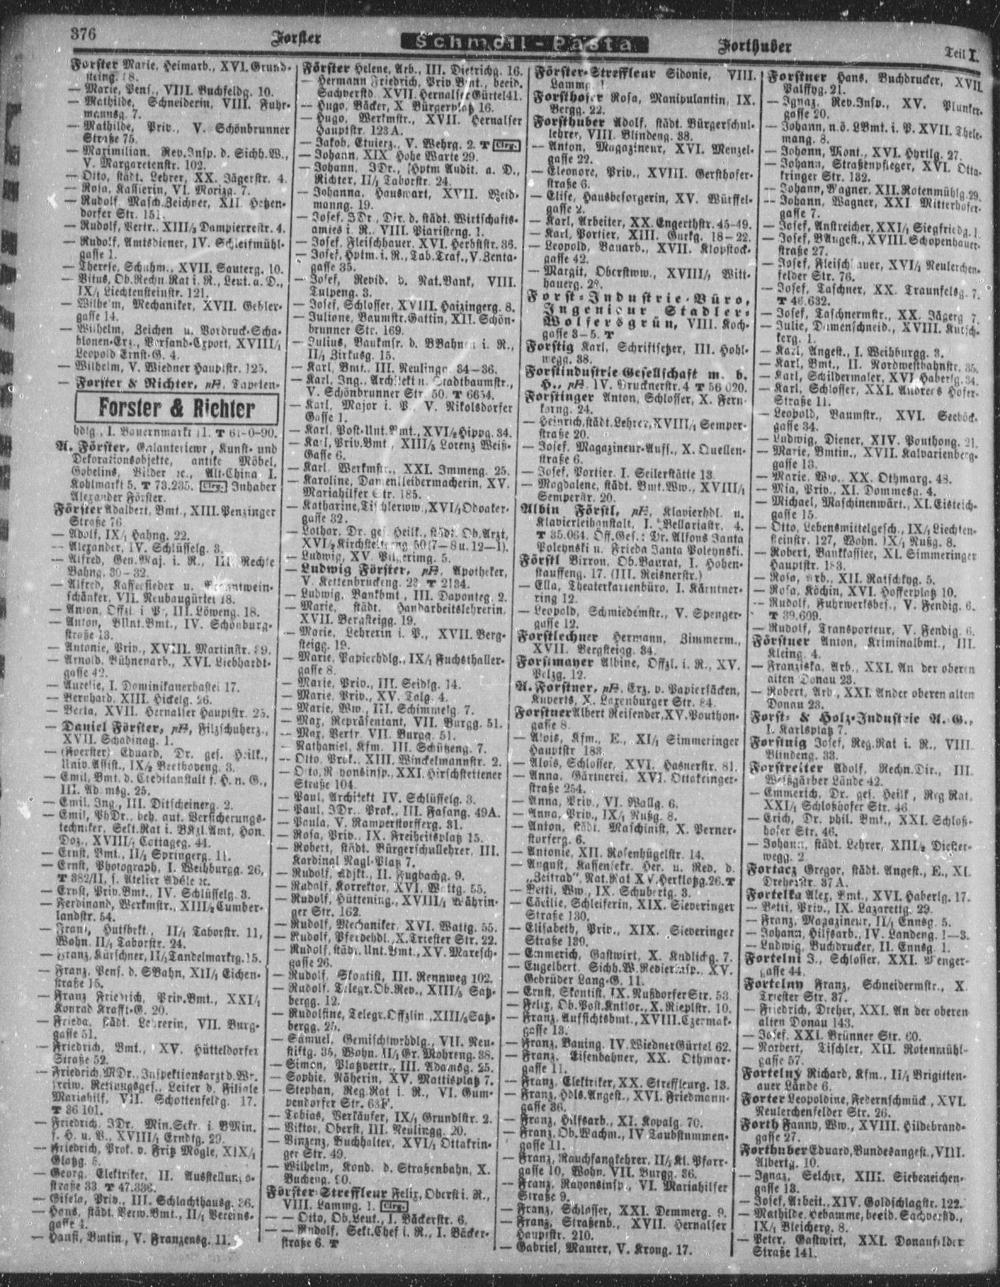 376
Forster
Schmoll-Pasta
Forthuber
Teil I.
Forster Marie, Heimarb., XVI. Grund-
steing. 18.
— Marie, Pens., VIII. Buchfeldg. 10.
— Mathilde, Schneiderin, VIII. Fuhr-
mannsg. 7.
— Mathilde, Priv., V. Schönbrunner
Straße 75.
— Maximilian, Rev.Insp. d. Sichh.W.,
V. Margaretenstr. 102.
— Otto, städt. Lehrer, XX. Jägerstr. 4.
— Rosa, Kassierin, VI. Morizg. 7.
— Rudolf Masch.Zeichner, XII. Hetzen-
dorfer Str. 151.
— Rudolf, Vertr., XIII/5 Dampierrestr. 4.
— Rudolf, Amtsdiener, IV. Schleifmühl-
gasse 1.
— Therese, Schuhm., XVII. Sauterg. 10.
— Vitus, Ob.Rechn.Rat i. R., Leut. a. D.,
IX/4 Liechtensteinstr. 121.
— Wilhelm, Mechaniker, XVII. Gebler-
gasse 14.
— Wilhelm, Zeichen u. Vordruck-Scha-
blonen-Erz., Versand-Export, XVIII/1
Leopold Ernst-G. 4.
— Wilhelm, V. Wiedner Hauptstr. 125.
— Forster & Richter, pH. Tapeten-
Forster & Richter
hdlg., I. Bauernmarkt 11. T 61-0-90.
A. Förster, Galanteriewr., Kunst- und
Dekorationsobjekte, antike Möbel,
Gobelins, Bilder rc., Alt-China, I.
Kohlmarkt 5. T 73.235. Clrg. Inhaber
Alexander Förster.
Förster Adalbert, Bmt., XIII. Penzinger
Straße 76.
— Adolf, IX/4 Hahng. 22.
— Alexander, IV. Schlüsselg. 3.
— Alfred, Gen.Maj. i. R., III. Rechte
Bahng. 30-32.
— Alfred, Kaffeesieder u. Branntwein-
schänker, VII. Neubaugürtel 18.
— Anton, Offzl. i. P., III. Löweng. 18.
— Anton, Bllnt.Bmt., IV. Schönburg-
straße 13.
— Antonie, Priv., XVIII. Martinstr. 89.
— Arnold, Bühnenarb., XVI. Liebhardt-
gasse 42.
— Aurelie, I. Dominikanerbastei 17.
— Bernhard, XIII. Hickelg. 26.
— Berta, XVII. Hernalser Hauptstr. 25.
— Daniel Förster, pH., Filzschuherz.,
XVII. Schadinag. 1.
— (Foerster) Eduard, Dr. ges. Heilk.,
Univ.Assist., IX/2 Beethoveng. 3.
— Emil, Bmt. d. Creditanstalt f. H. u. G.,
III. Ad.msg. 25.
— Emil, Ing., III. Ditscheinerg. 2.
— Emil, PhDr., beh. aut. Versicherungs-
techniker, Sekt.Rat i. BKzl.Amt, Hon.
Doz., XVIII/1 Cottageg. 44.
— Ernst, Bmt., II/2 Springerg. 11.
— Ernst, Photograph, I. Weihburgg. 26,
T 382/II, s. Atelier Adèle rc.
— Ernst, Priv.Bmt., IV. Schlüsselg. 3.
— Ferdinand, Werkmstr., XIII/5 Cumber-
landstr. 54.
— Franz, Hutfbrkt., II/1 Taborstr. 11,
Wohn. II/1 Taborstr. 24.
— Franz, Kürschner, II/1 Tandelmarktg. 15.
— Franz, Pens. d. SBahn, XII/1 Eichen-
straße 15.
— Franz Friedrich, Priv.Bmt., XXI/4
Konrad Krafft-G. 20.
— Frieda, städt. Lehrerin, VII. Burg-
gasse 51.
— Friedrich, Bmt., XV. Hütteldorfer
Straße 52.
— Friedrich, MDr., Inspektionsarzt d. Wr.
freiw. Rettungsges., Leiter d. Filiale
Mariahilf, VII. Schottenfeldg. 17.
T 36 101.
— Friedrich, JDr. Min.Sekr. i. BMin.
f. H. u. V., XVIII/1 Erndtg. 29.
— Friedrich, Prok. v. Fritz Mögle, XIX/1
Glatzg. 5.
— Georg, Elektriker, II. Ausstellungs-
straße 33. T 47.336.
— Gisela, Priv., III. Schlachthausg. 36.
— Hans, städt. Verw.Bmt., II/1 Vereins-
gasse 4.
— Hansi, Bmtin, V. Franzensg. 11.
Förster Helene, Arb., III. Dietrichg. 16.
— Hermann Friedrich, Priv.Bmt., beeid.
Sachverstd., XVII. Hernalser Gürtel 41.
— Hugo, Bäcker, X. Bürgerplatz 16.
— Hugo, Werkmstr., XVII. Hernalser
Hauptstr. 123 A.
— Jakob, Etuierz., V. Wehrg. 2. T Clrg.
— Johann, XIX. Hohe Warte 29.
— Johann, JDr., Hptm. Audit. a. D.,
Richter, II/1 Taborstr. 24.
— Johanna, Hauswart, XVII. Weid-
manng. 19.
— Josef, JDr., Dir. d. städt. Wirtschafts-
amtes i. R., VIII. Piaristeng. 1.
— Josef, Fleischhauer, XVI. Herbststr. 36.
— Josef, Hptm. i. R., Tab.Traf., V. Zenta-
gasse 35.
— Josef, Revid. d. Nat.Bank, VIII.
Tulpeng. 3.
— Josef, Schlosser, XVIII. Haizingerg. 8.
— Juliane, Baumstr.Gattin, XII. Schön-
brunner Str. 169.
— Julius, Baukmsr. d. BBahnen i. R.,
II/1 Zirkusg. 15.
— Karl, Bmt., III. Reulingg. 34-36.
— Karl, Ing., Architekt u. Stadtbaumstr.,
V. Schönbrunner Str. 50. T 6654.
— Karl, Major i. P. V. Nikolsdorfer
Gasse 1.
— Karl, Post-Unt.Bmt., XVI/2 Hippg. 34.
— Karl, Priv.Bmt., XIII/5 Lorenz Weiß-
Gasse 6.
— Karl, Werkmstr., XXI. Immeng. 25.
— Karoline, Damenkleidermacherin, XV.
Mariahilfer Str. 185.
— Katharine, Tischlersww., XVI/2 Odoaker-
gasse 32.
— Lothar, Dr. ges. Heilk., städt. Ob.Arzt,
XVI/2 Kirchstetterng. 50 (7-8 u. 12-1).
— Ludwig, XV. Pilgerimg. 5.
— Ludwig Förster, pH., Apotheker,
V. Kettenbrückeng. 23. T 2134.
— Ludwig, Bankbmt., III. Dapontég. 2.
— Marie, städt. Handarbeitslehrerin,
XVII. Bergsteigg. 19.
— Marie, Lehrerin i. P., XVII. Berg-
steigg. 19.
— Marie, Papierhdlg., IX/4 Fuchsthaller-
gasse 8.
— Marie, Priv., III. Seidlg. 14.
— Marie, Priv., XV. Talg. 4.
— Marie, Ww., III. Schimmelg. 7.
— Max, Repräsentant, VII. Burgg. 51.
— Max, Vertr. VII. Burgg. 51.
— Nathaniel, Kfm., III. Schützeng. 7.
— Otto, Prok., XIII. Winckelmannstr. 2.
— Otto, Revisionsinsp., XXI. Hirschstettener
Straße 104.
— Paul, Architekt IV. Schlüsselg. 3.
— Paul, JDr., Prok., III. Fasang. 49A.
— Paula, V. Ramperstorfferg. 31.
— Rosa, Priv., IX. Freiheitsplatz 15.
— Robert, städt. Bürgerschullehrer, III.
Kardinal Nagl-Platz 7.
— Rudolf, Adjkt., II. Fugbachg. 9.
— Rudolf, Korrektor, XVI. Wattg. 55.
— Rudolf, Hüttening., XVIII/1 Währin-
ger Str. 162.
— Rudolf, Mechaniker, XVI. Wattg. 55.
— Rudolf, Pferdehdl., X. Triester Str. 22.
— Rudolf, städt. Unt.Bmt., XV. Maresch-
gasse 26.
— Rudolf, Skontist, III. Rennweg 102.
— Rudolf, Telegr.Ob.Rev., XIII/5 Satz-
bergg. 12.
— Rudolfine, Telegr.Offzlin., XIII/5 Satz-
bergg. 25.
— Samuel, Gemischtwrhdlg., VII. Neu-
stiftg. 35, Wohn. II/1 Gr. Mohreng. 38.
— Simon, Platzvertr., III. Adamsg. 25.
— Sophie, Näherin, XV. Mattisplatz 7.
— Stephan, Reg.Rat i. R., VI. Gum-
pendorfer Str. 63F.
— Tobias, Verkäufer, IX/4 Grundlstr. 2.
— Viktor, Oberst, III. Reulingg. 20.
— Vinzenz, Buchhalter, XVI/1 Ottakrin-
ger Str. 49.
— Wilhelm, Kond. d. Straßenbahn, X.
Bucheng. 90.
Förster-Streffleur Felix, Oberst i. R.,
VIII. Lammg. 1. Clrg.
— — Otto, Ob.Leut., I. Bäckerstr. 6.
— — Rudolf, Sekt.Chef i. R., I. Bäcker-
straße 6. T
Förster-Streffleur Sidonie, VIII.
Lammg. 1.
Forsthofer Rosa, Manipulantin, IX.
Bergg. 22.
Forsthuber Adolf, städt. Bürgerschul-
lehrer, VIII. Blindeng. 38.
— Anton, Magazineur, XVI. Menzel-
gasse 22.
— Eleonore, Priv., XVIII. Gersthofer-
straße 6.
— Elise, Hausbesorgerin, XV. Würffel-
gasse 2.
— Karl, Arbeiter, XX. Engerthstr. 45-49.
— Karl, Portier, XIII. Gurkg. 18-22.
— Leopold, Bauarb., XVII. Klopstock-
gasse 42.
— Margit, Oberstww., XVIII/1 Witt-
hauerg. 28.
Forst-Industrie-Büro,
Ingenieur Stadler-
Wolfersgrün, VIII. Koch-
gasse 3-5. T
Forstig Karl, Schriftsetzer, III. Hohl-
wegg. 38.
Forstindustrie Gesellschaft m. b.
H., pH. IV. Bruckner​str. 4 T 56 020.
Forstinger Anton, Schlosser, X. Fern-
korng. 24.
— Heinrich, städt. Lehrer, XVIII/1 Semper-
straße 20.
— Josef, Magazineur-Auff., X. Quellen-
straße 6.
— Josef, Portier, I. Seilerstätte 13.
— Magdalene, städt. Bmt.Ww., XVIII/1
Semperstr. 20.
Albin Förstl, pH., Klavierhdl. u.
Klavierleihanstalt, I. Bellariastr. 4.
T 35.064. Off.Ges.: Dr. Alfons Janta
Polcynski u. Frieda Janta Polcynski.
Förstl Birron, Ob.Baurat, I. Hohen-
stauffeng. 17. (III. Reisnerstr.)
— Ella, Theaterkartenbüro, I. Kärntner-
ring 12.
— Leopold, Schmiedemstr., V. Spenger-
gasse 12.
Forstlechner Hermann, Zimmerm.,
XVII. Bergsteigg. 34.
Forstmayer Albine, Offzl. i. R., XV.
Pelzg. 12.
A. Forstner, pH. Erz. v. Papiersäcken,
Kuverts, X. Laxenburger Str. 84.
Forstner Albert Reisender, XV. Pouthon-
gasse 8.
— Alois, Kfm., E., XI/1 Simmeringer
Hauptstr. 183.
— Alois, Schlosser, XVI. Hasnerstr. 81.
— Anna, Gärtnerei, XVI. Ottakringer-
straße 254.
— Anna, Priv., VI. Wallg. 6.
— Anna, Priv., IX/4 Nußg. 8.
— Anton, städt. Maschinist, X. Perner-
storferg. 6.
— Antonie, XII. Rosenhügelstr. 14.
— August, Kaffeesiek., Her. u. Red. d.
„Zeitrad“, Rat, Rat XV. Herklotzg. 26. T
— Betti, Ww., IX. Schubertg. 3.
— Cäcilie, Schleiferin, XIX. Sieveringer
Straße 130.
— Elisabeth, Priv., XIX. Sieveringer
Straße 130.
— Emmerich, Gastwirt, X. Kudlichg. 7.
— Engelbert, Sichh.W.Revierinsp., XV.
Gebrüder Lang-G. 11.
— Ernst, Skontist, IX. Nußdorfer Str. 53.
— Felix, Ob.Post.Kntlor., X. Rieplstr. 10.
— Franz, Aufsichtsbmt., XVIII. Czermak-
gasse 13.
— Franz, Bauing., IV. Wiedner Gürtel 62.
— Franz, Eisenbahner, XX. Othmar-
gasse 11.
— Franz, Elektriker, XX. Streffleurg. 13.
— Franz, Hdls.Angest., XVI. Friedmann-
gasse 36.
— Franz, Hilfsarb., XI. Kopalg. 70.
— Franz, Ob.Wachm., IV. Taubstummen-
gasse 11.
— Franz, Rauchfangkehrer, II/1 Kl. Pfarr-
gasse 10, Wohn. VII. Burgg. 36.
— Franz, Rayonsinsp., VI. Mariahilfer
Straße 9.
— Franz, Schlosser, XXI. Demmerg. 9.
— Franz, Straßenb., XVII. Hernalser
Hauptstr. 210.
— Gabriel, Maurer, V. Krong. 17.
Forstner Hans, Buchdrucker, XVII.
Palffyg. 21.
— Ignaz, Rev.Insp., XV. Plunker-
gasse 20.
— Johann, n.ö. LBmt. i. P. XVII. Thele-
mang. 8.
— Johann, Mont., XVI. Hyrtlg. 27.
— Johann, Straßenpfleger, XVI. Otta-
kringer Str. 132.
— Johann, Wagner, XII. Rotenmühlg. 29.
— Johann, Wagner, XXI. Mitterhofer-
gasse 7.
— Josef, Anstreicher, XXI/4 Siegfriedg. 1.
— Josef, BAngest., XVIII. Schopenhauer-
straße 27.
— Josef, Fleischhauer, XVI/1 Neulerchen-
felder Str. 76.
— Josef, Taschner, XX. Traunfelsg. 7.
T 46.632.
— Josef, Taschnermstr., XX. Jägerg. 7.
— Julie, Damenschneid., XVIII. Kutsch-
kerg. 1.
— Karl, Angest., I. Weihburgg. 3.
— Karl, Bmt., II. Nordwestbahnstr. 35.
— Karl, Schildermaler, XVI. Haberlg. 34.
— Karl, Schlosser, XXI. Andreas Hofer-
Straße 11.
— Leopold, Baumstr., XVI. Seeböck-
gasse 34.
— Ludwig, Diener, XIV. Pouthong. 21.
— Marie, Bmtin, XVII. Kalvarienberg-
gasse 13.
— Marie, Ww., XX. Othmarg. 48.
— Mia, Priv., XI. Dommesg. 4.
— Michael, Maschinenwärt., XI. Eisteich-
gasse 15.
— Otto, Lebensmittelgesch., IX/4 Liechten-
steinstr. 127, Wohn. IX/4 Nußg. 8.
— Robert, Bankkassier, XI. Simmeringer
Hauptstr. 183.
— Rosa, Arb., XII. Ratschkyg. 5.
— Rosa, Köchin, XVI. Hofferplatz 10.
— Rudolf, Fuhrwerksbes., V. Fendig. 6.
T 39.609.
— Rudolf, Transporteur, V. Fendig. 6.
Förstner Anton, Kriminalbmt., III.
Kleing. 4.
— Franziska, Arb., XXI. An der oberen
alten Donau 23.
— Robert, Arb., XXI. An der oberen alten
Donau 23.
Forst- & Holz-Industrie A. G.,
I. Karlsplatz 7.
Forstnig Josef, Reg.Rat i. R., VIII.
Blindeng. 33.
Forstreiter Adolf, Rechn.Dir., III.
Weißgärber Lände 42.
— Emmerich, Dr. ges. Heilk., Reg.Rat,
XXI/4 Schloßhofer Str. 46.
— Erich, Dr. phil., Bmt., XXI. Schloß-
hofer Str. 46.
— Johann, städt. Lehrer, XIII/2 Diester-
wegg. 2.
Fortacz Gregor, städt. Angest., E., XI.
Dreherstr. 37 A.
Fortelka Alex, Bmt., XVI. Haberlg. 17.
— Betti, Priv., IX. Lazarettg. 29.
— Franz, Magazineur, II/1 Ennsg. 5.
— Johann, Hilfsarb., IV. Landeng. 1-3.
— Ludwig, Buchdrucker, II. Ennsg. 1.
Fortelni J., Schlosser, XXI. Wenger-
gasse 44.
Fortelny Franz, Schneidermstr., X.
Triester Str. 37.
— Friedrich, Dreher, XXI. An der oberen
alten Donau 143.
— Josef, XXI. Brünner Str. 60.
— Norbert, Tischler, XII. Rotenmühl-
gasse 57.
Forteln​y Richard, Kfm., II/1 Brigitten-
auer Lände 6.
Forter Leopoldine, Federnschmück., XVI.
Neulerchenfelder Str. 26.
Forth Fanny, Ww., XVIII. Hildebrand-
gasse 27.
Forthuber Eduard, Bundesangest., VIII.
Albertg. 10.
— Ignaz, Selcher, XIII. Siebeneichen-
gasse 13.
— Josef, Arbeit., XIV. Goldschlagstr. 122.
— Mathilde, Hebamme, beeid. Sachverstd.,
IX/4 Bleicherg. 8.
— Peter, Gastwirt, XXI. Donaufelder
Straße 141.